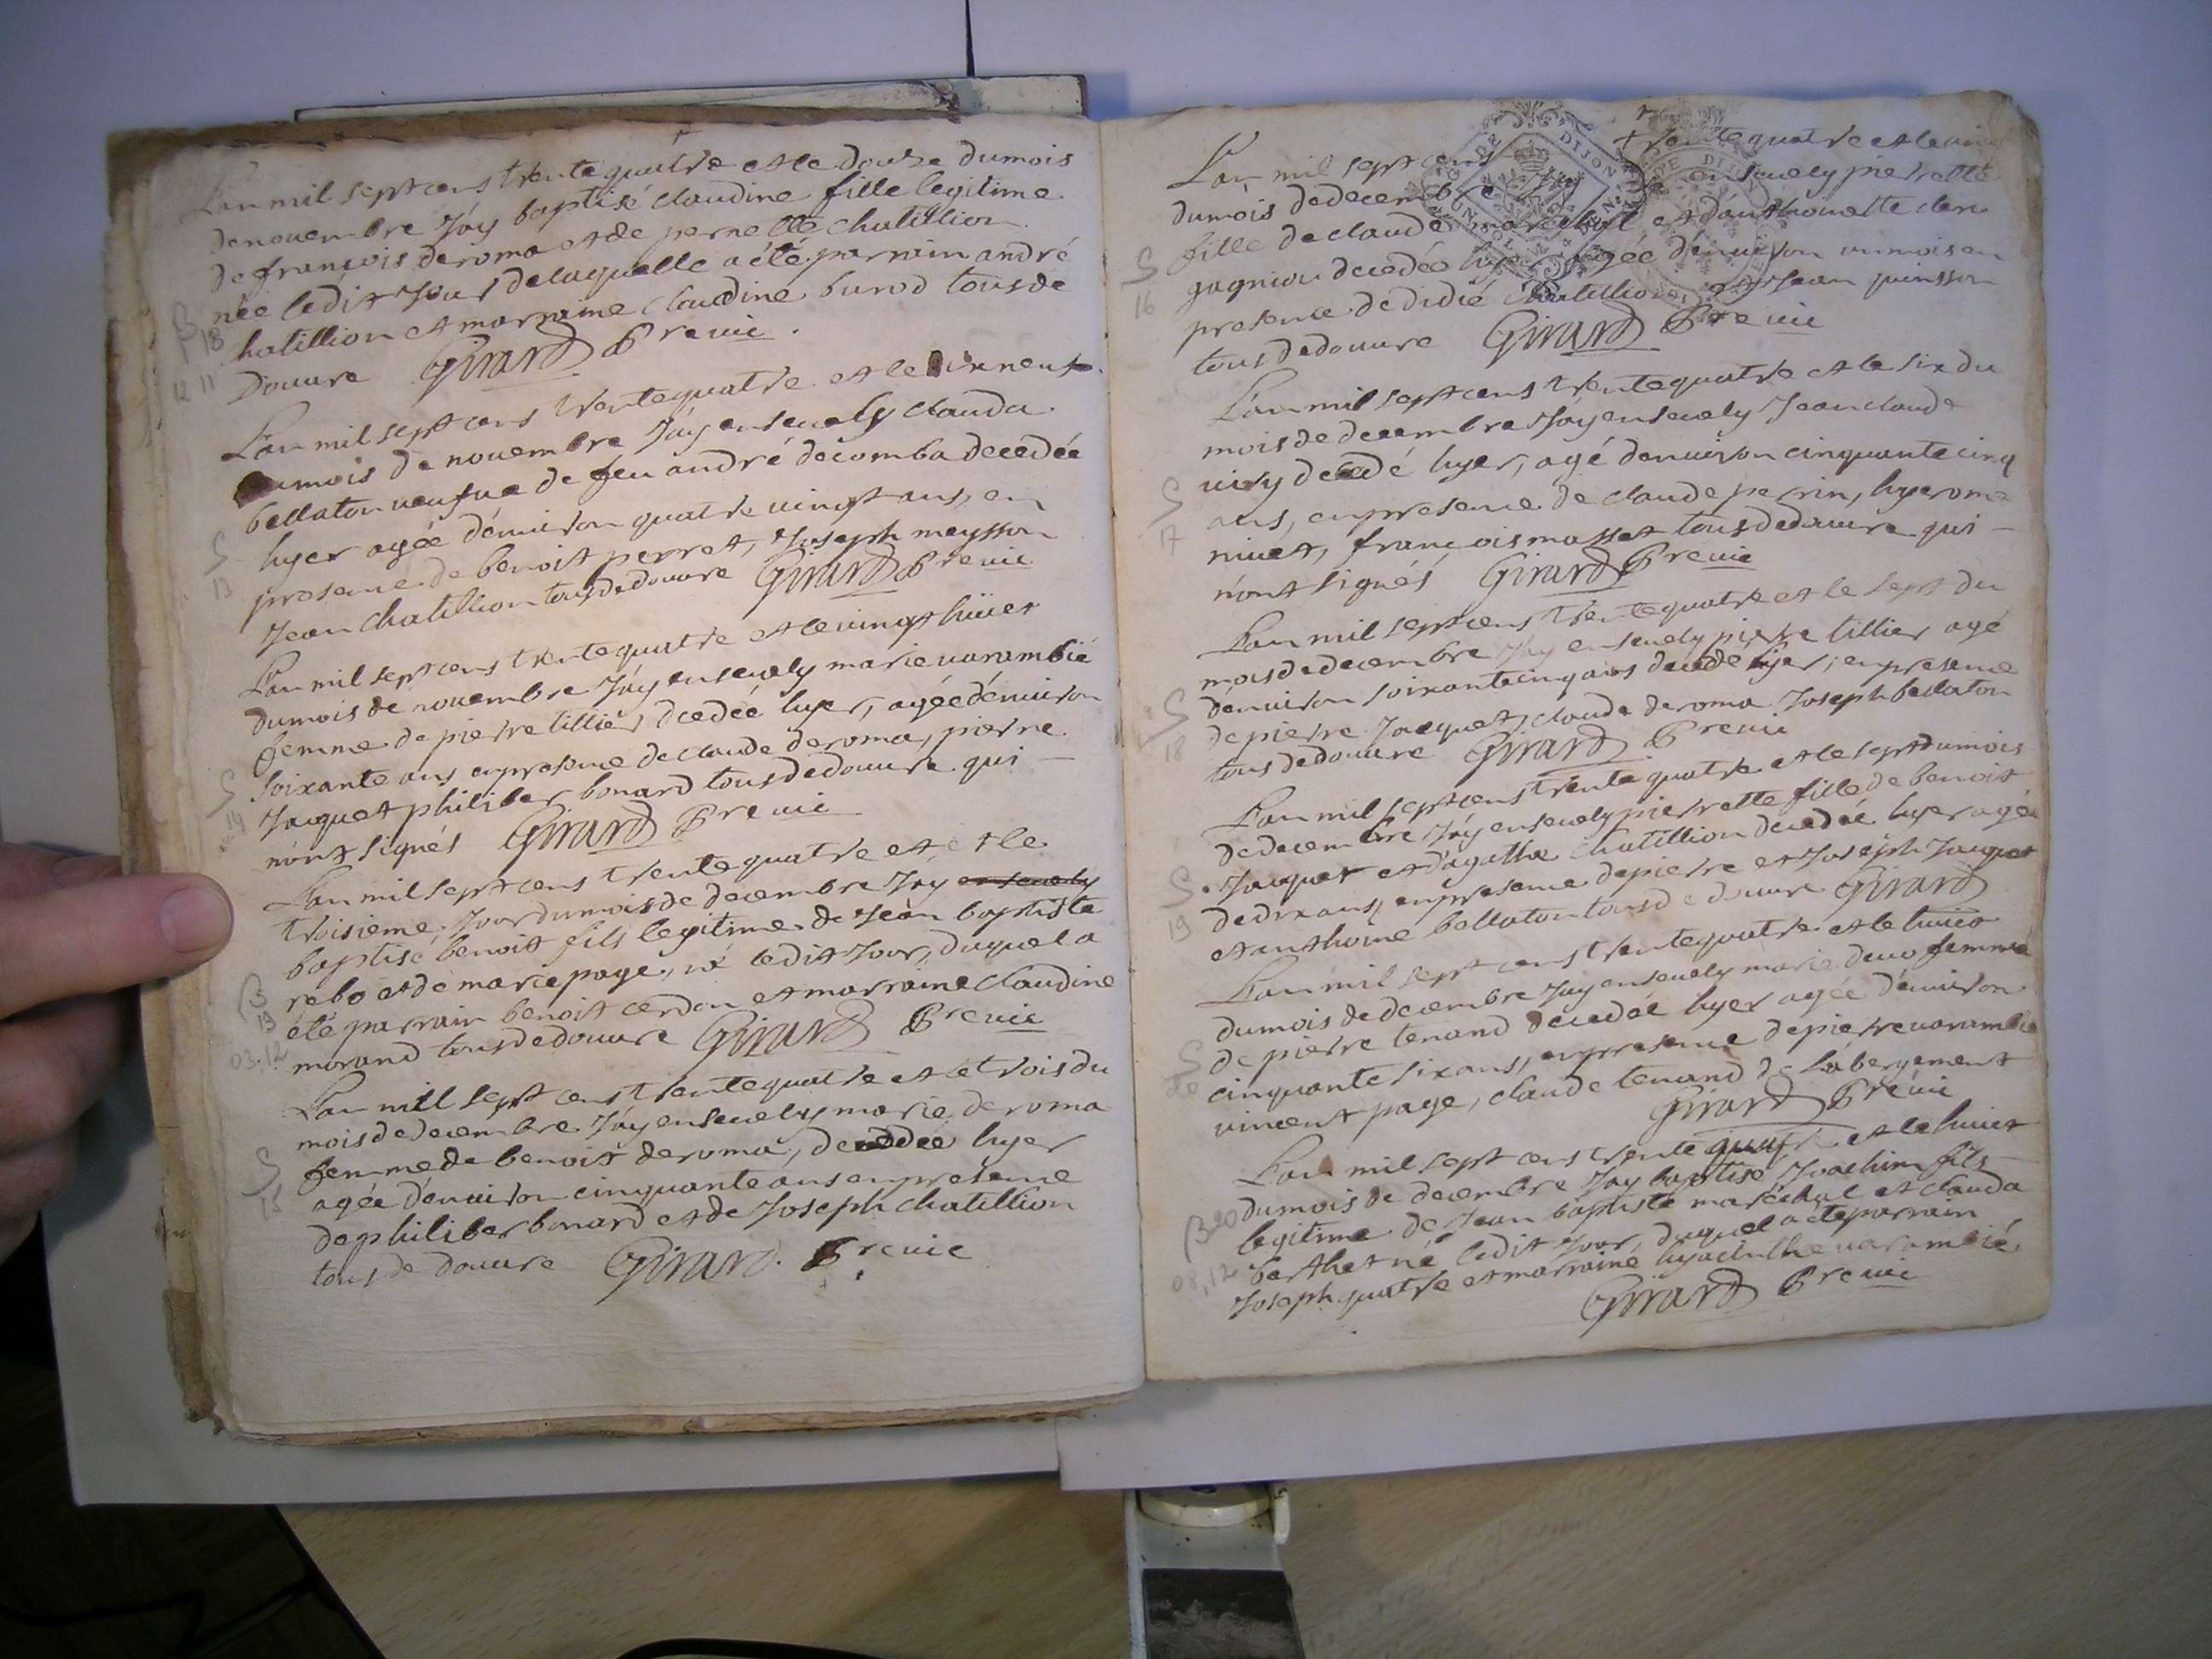 L'an mil sept cens trente quatre et le douze du mois
de novembre J'ay baptisé claudine fille legitime
de françois deroma et de pernette chatillion
née ledit Jour de laquelle a été parrain andré
chatillion et marraine claudine burod tous de
Douure Girard Pre vic
B 18
12 11
L'an mil sept cens trente quatre et le dix neuf
du mois de novembre J'ay ensevely clauda
bellaton veufve de feu andré decomba decedée
hyer agée d'environ quatre vingt ans, en
presence de benoit perret, Joseph meysson
Jean chatillion tous de douure Girard Pre vic
S
13
L'an mil sept cens trente quatre et le vingt huict
du mois de novembre J'ay ensevely marie varambié
femme de pierre tillier decedée hyer, agée d'environ
soixante ans en presence de claude deroma, pierre
Jacquet philiber bonard tous de douure qui
n'ont signés Girard Pre vic
S
14
L'an mil sept cens trente quatre et et le
troisieme Jour du mois de decembre J'ay ensevely
baptisé benoit fils legitime de Jean baptiste
rebo et de marie page, né ledit Jour, duquel a
été parrain benoit cerdon et marraine claudine
morand tous de douure Girard Pre vic
B
19
03.12
L'an mil sept cens trente quatre et le trois du
mois de decembre J'ay ensevely marie deroma
femme de benoit deroma, decedée hyer
agée d'environ cinquante ans en presence
de philiber bonard et de Joseph chatillion
tous de douure Girard. Pre vic
S
15
L'an mil sept cens trente quatre et le
du mois de decembre J'ay ensevely pierrette
fille de claude mareschal et d'anthoinette clere
gagniou decedée hyer agée d'environ un mois en
presence de didié chatillion et Jean quinsson
tous de douure Girard Pre vic
S
16
L'an mil sept cens trente quatre et le six du
mois de decembre J'ay ensevely Jean claude
decedé hyer, agé d'environ cinquante cinq
ans, en presence de claude perrin, hyerome
nivet, françois masset tous de douure qui
n'ont signés Girard Pre vic
S
17
L'an mil sept cens trente quatre et le sept du
mois de decembre J'ay ensevely pierre tillier agé
d'environ soixante cinq ans decedé hyer, en presence
de pierre Jacquet, claude deroma Joseph bellaton
tous de douure Girard Pre vic
S
18
L'an mil sept cens trente quatre et le sept du mois
de decembre J'ay ensevely pierrette fille de benoit
Jacquet et d'agathe chatillion decedée hyer agée
de dix ans, en presence de pierre et Joseph Jacquet
et anthoine bellaton tous de douure Girard
S
19
L'an mil sept cens trente quatre et le huict
du mois de decembre J'ay ensevely marie devo femme
de pierre tenand decedée hyer agée d'environ
cinquante six ans, en presence de pierre varambié
vincent page, claude tenand de l'abergement
Girard Pre vic
S
20
L'an mil sept cens trente quatre et le huict
du mois de decembre J'ay baptisé Joachim fils
legitime de Jean baptiste maréchal et clauda
berthet né ledit Jour, duquel a été parrain
Joseph quatre et marraine hyacinthe varambié
Girard Pre vic
B 20
08,12